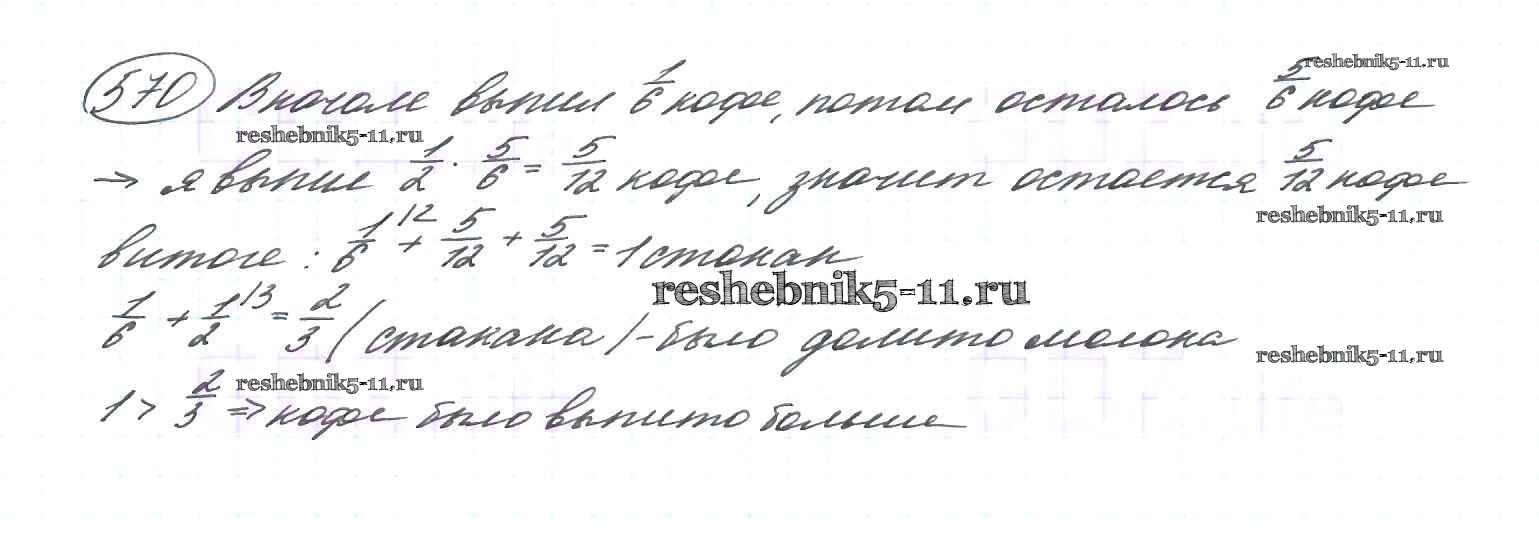 570 Вначале выпил 1/6 кофе, потом осталось 5/6 кофе
reshebnik5-11.ru
reshebnik5-11.ru
→ я выпил 1/2 · 5/6 = 5/12 кофе, значит остается 5/12 кофе
reshebnik5-11.ru
в итоге : 1/6 \2 + 5/12 + 5/12 = 1 стакан
reshebnik5-11.ru
1/6 + 1/2 \3 = 2/3 (стакана) - было долито молока
reshebnik5-11.ru
reshebnik5-11.ru
1 > 2/3 => кофе было выпито больше